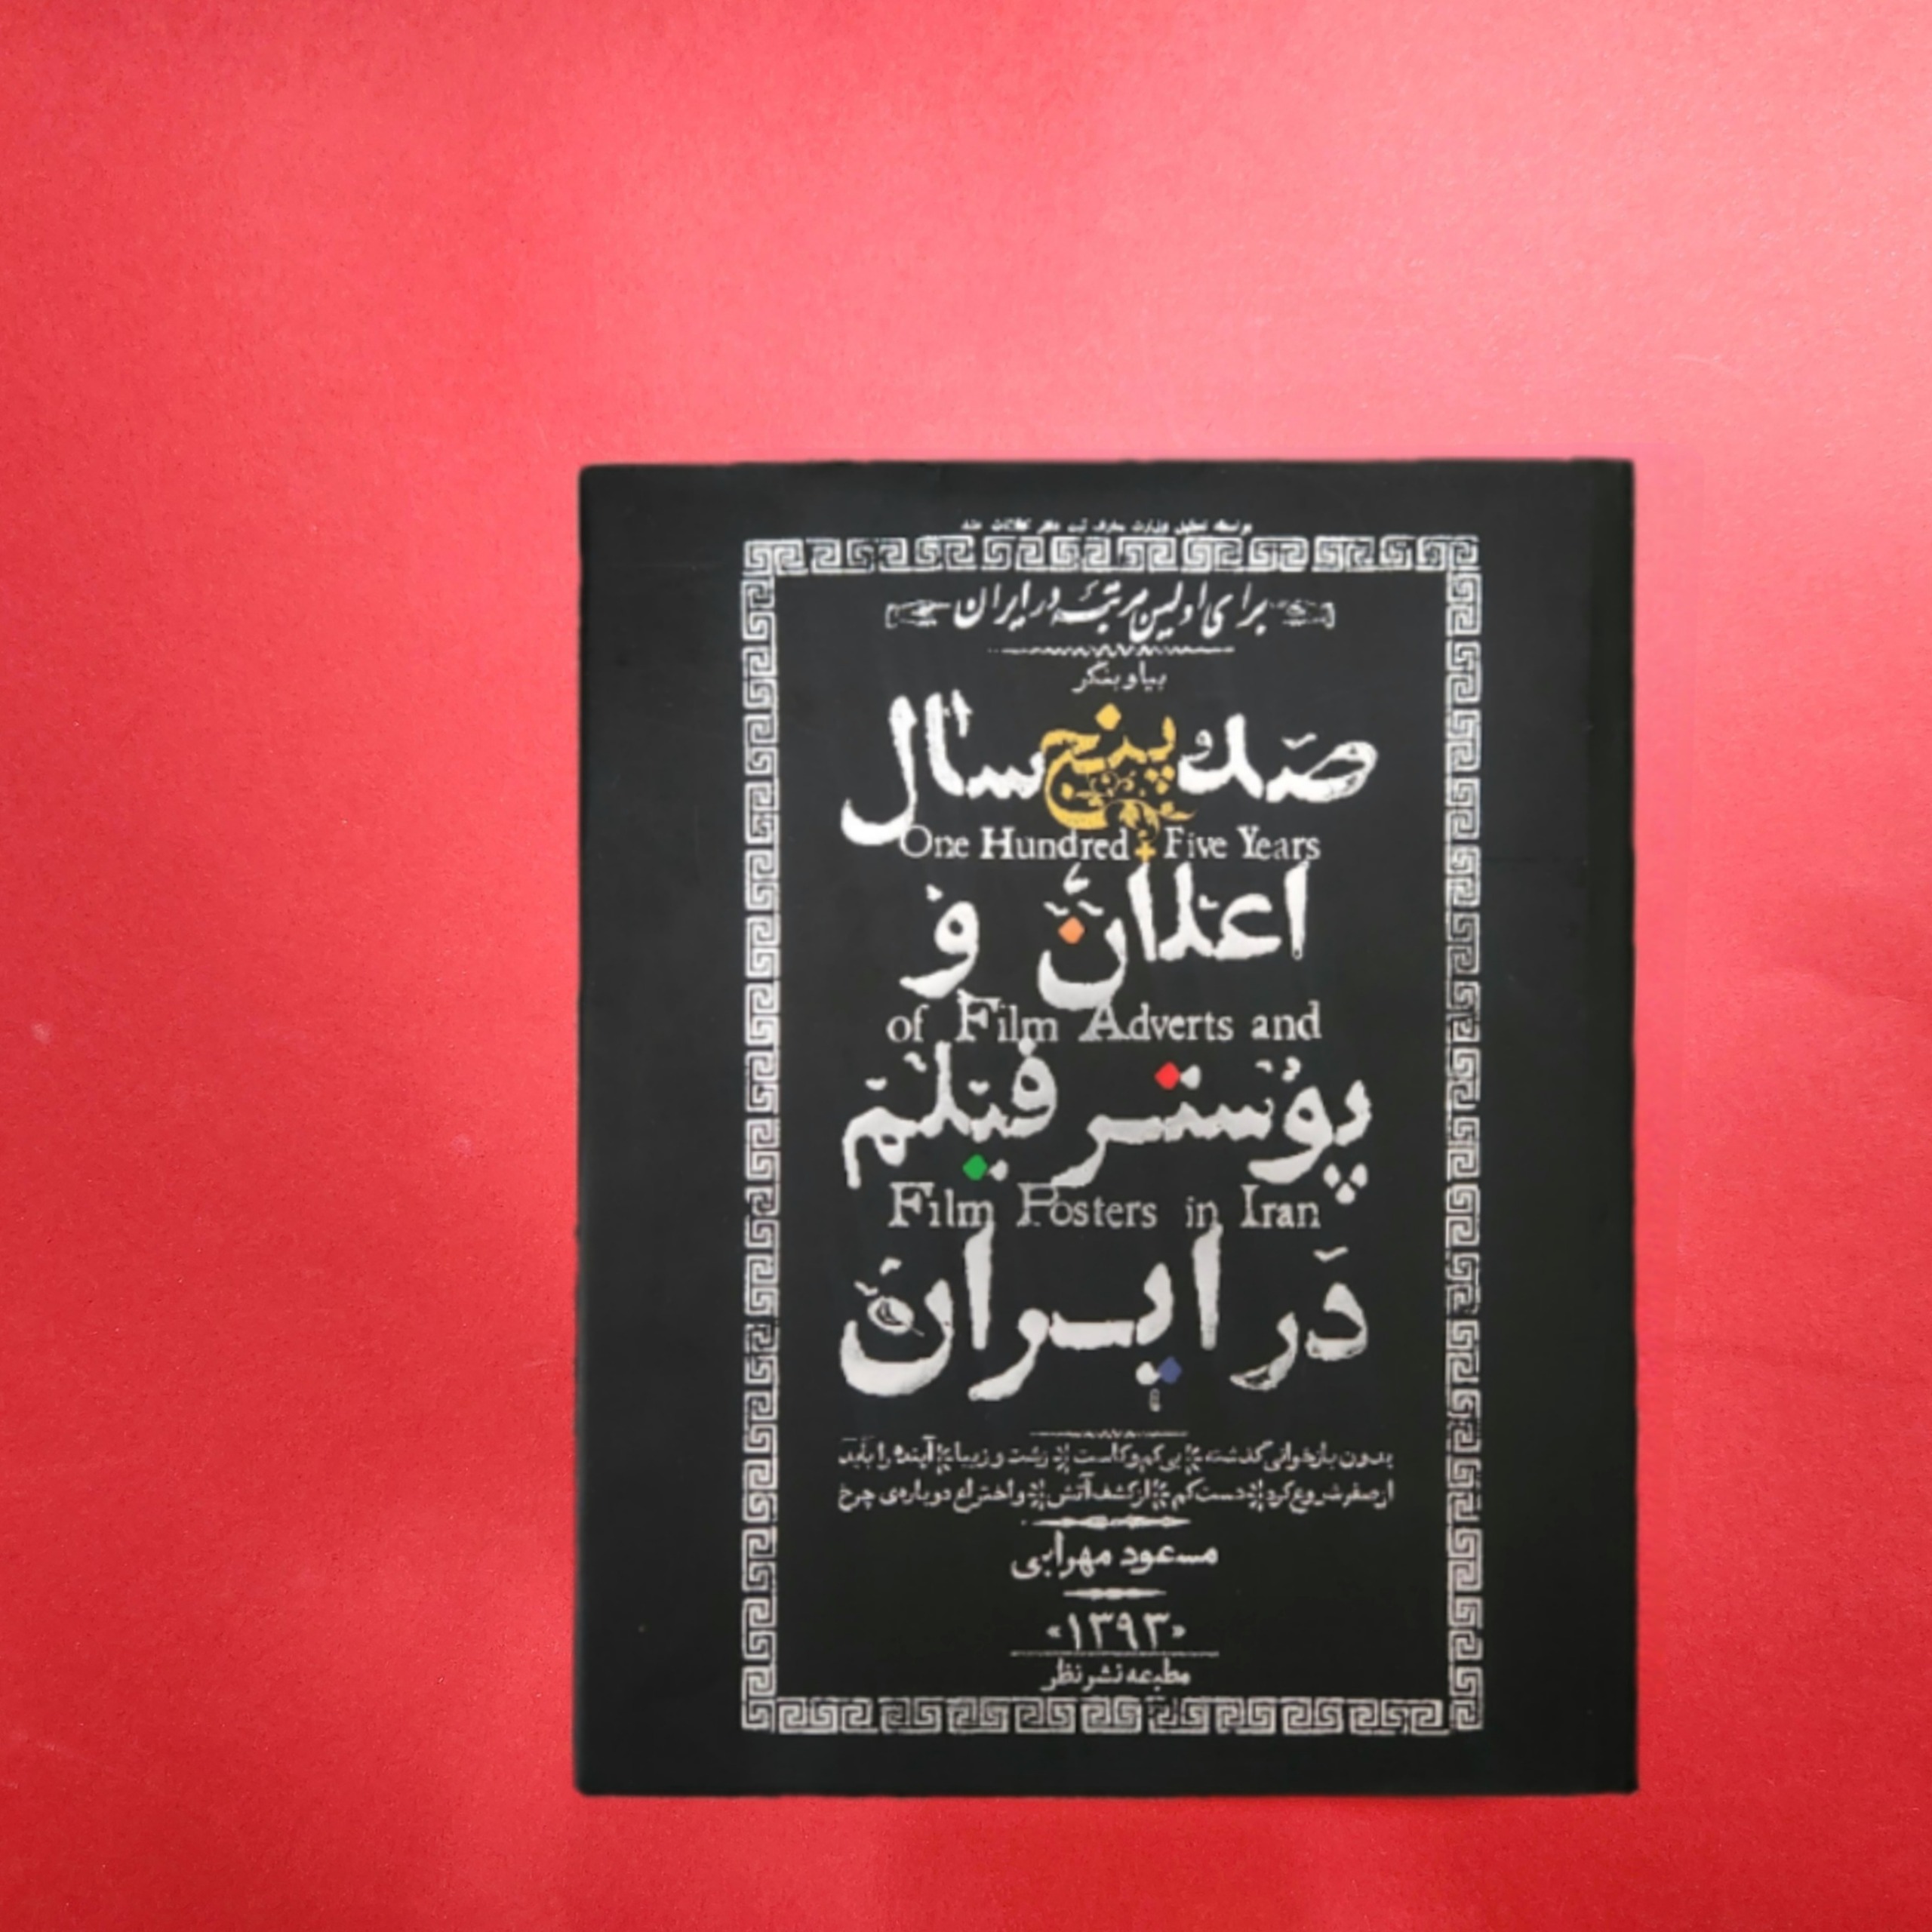 برای اولین مرتبه در ایران
بیا و بنگر
صد و پنج سال
One Hundred + Five Years
اعلان و
of Film Adverts and
پوستر فیلم
Film Posters in Iran
در ایران
بدون بازخوانی گذشته بی کم و کاست زشت و زیبا آینده را باید
از صفر شروع کرد دست کم از کشف آتش و اختراع دوباره‌ی چرخ
مسعود مهرابی
«۱۳۹۳»
مطبعه نشر نظر